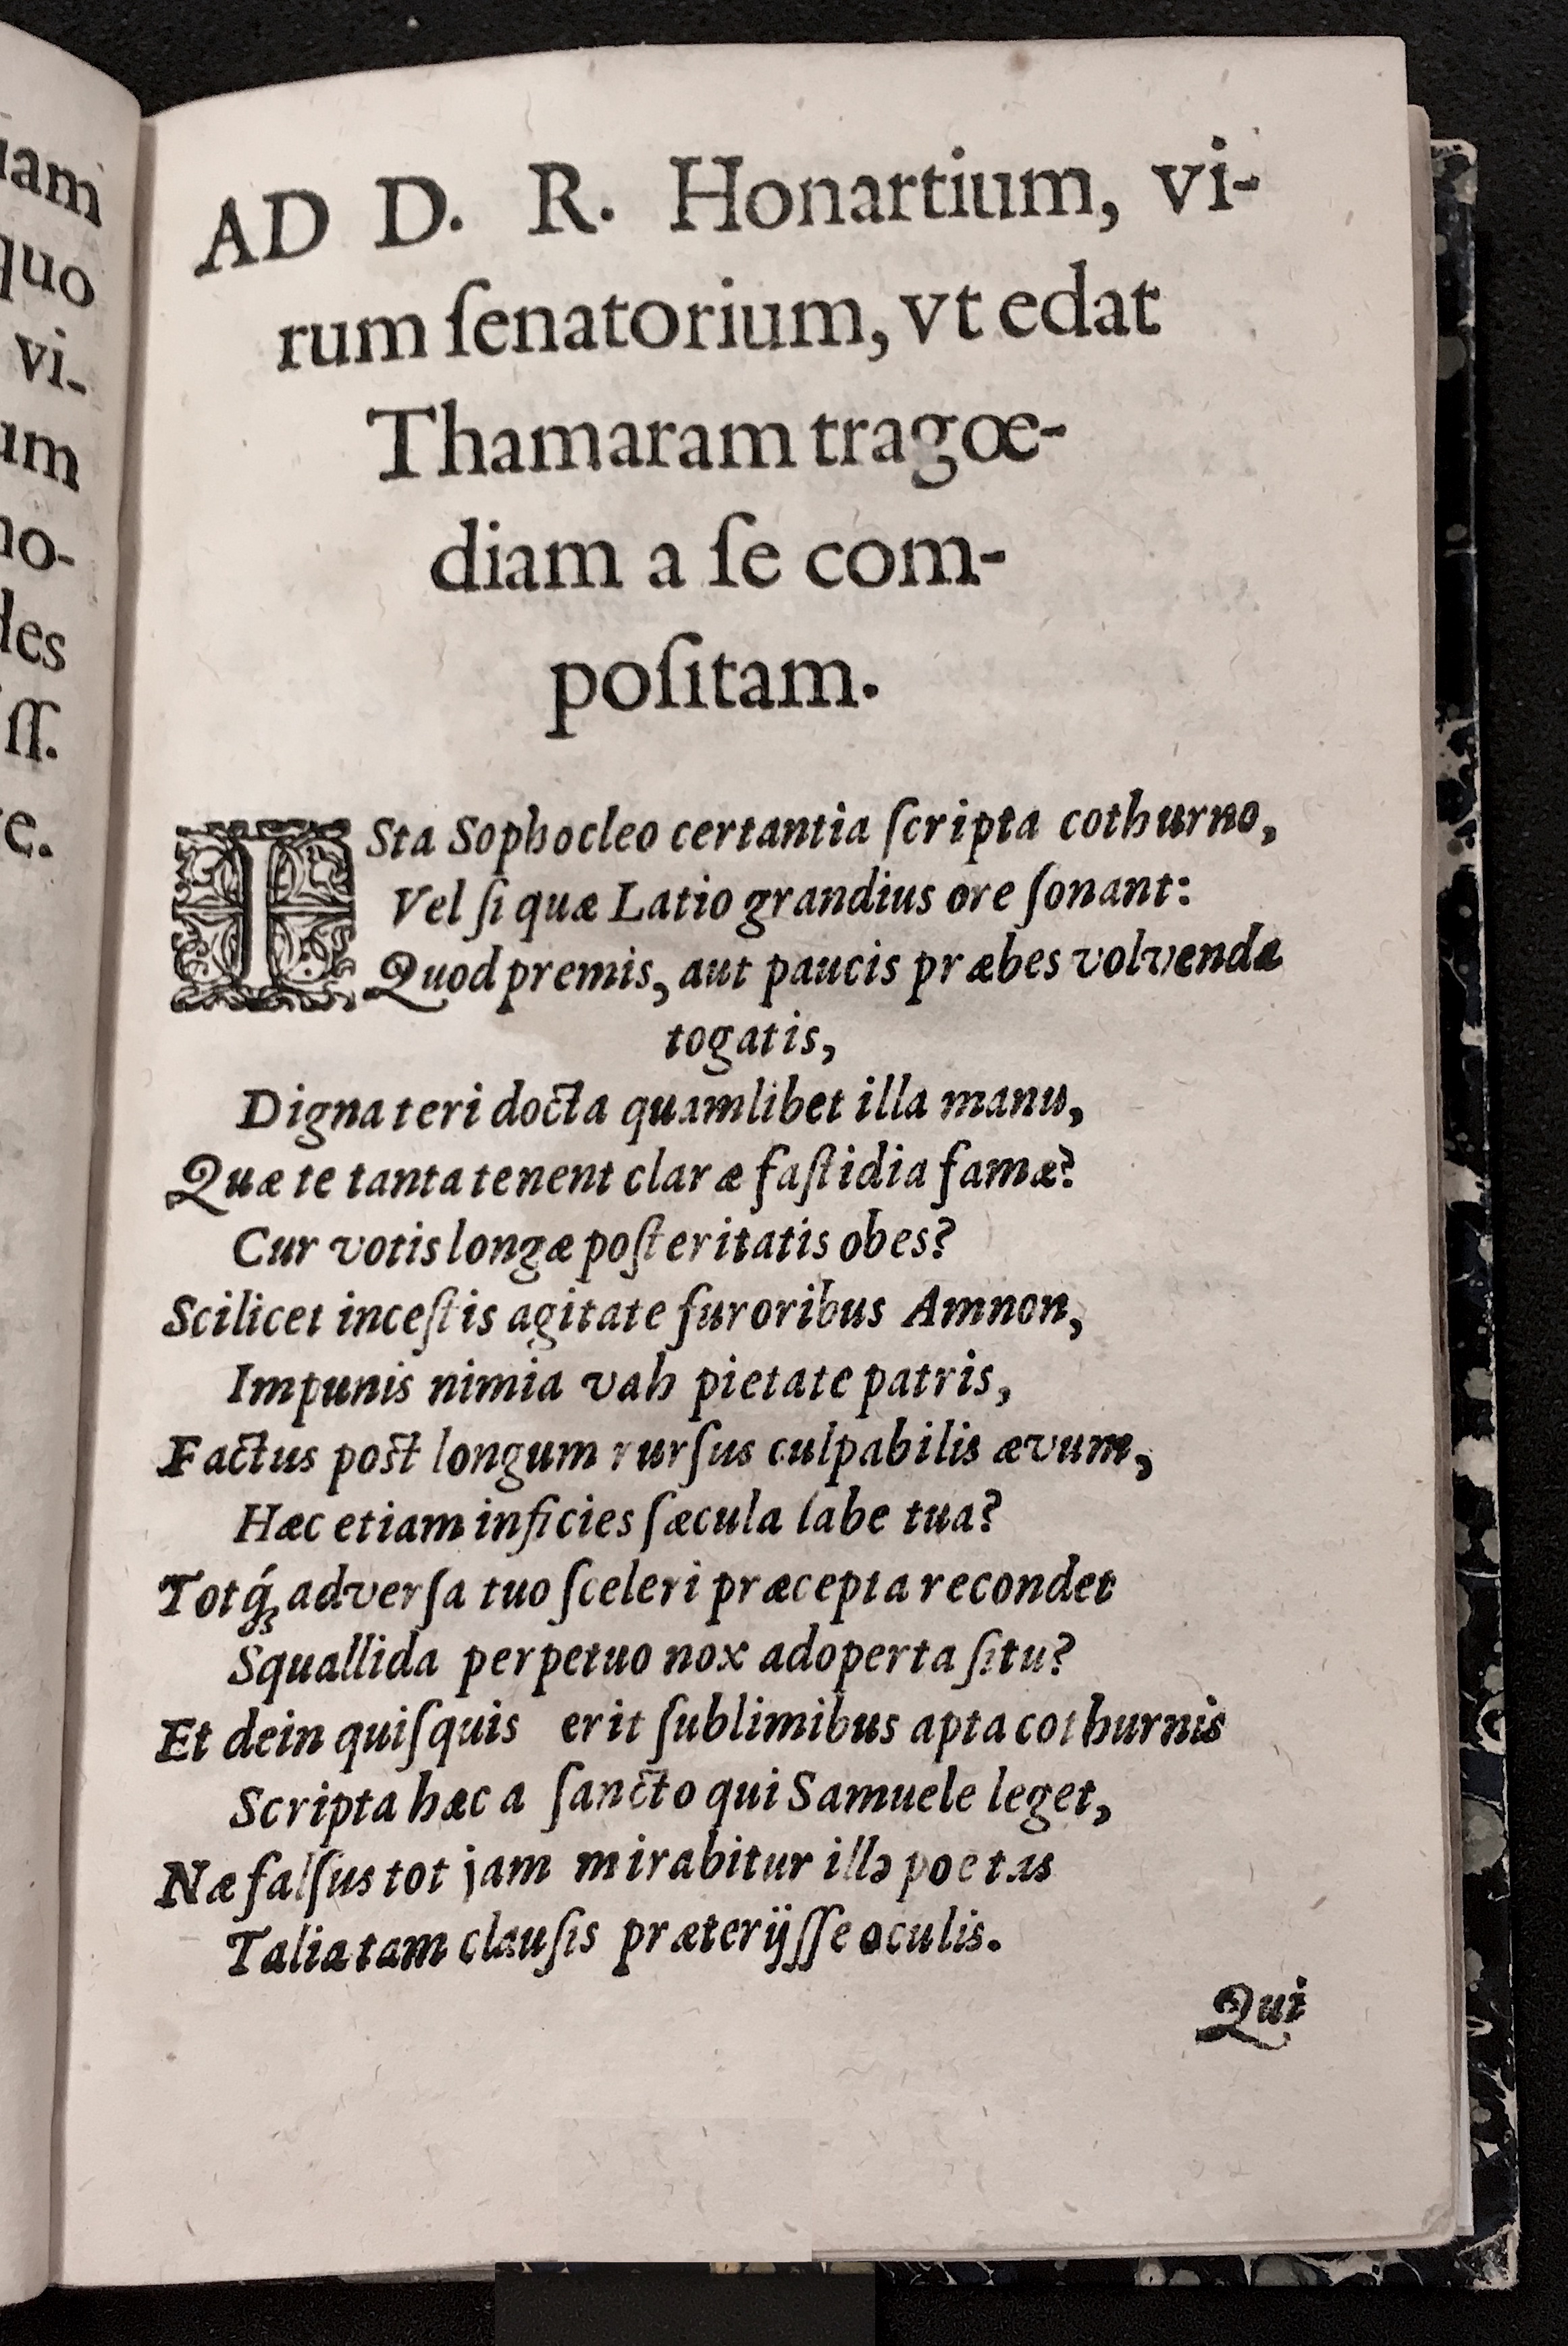 AD D. R. Honartium, vi-
rum ſenatorium, vt edat
Thamaram tragœ-
diam a ſe com-
poſitam.
ISta Sophocleo certantia ſcripta cothurno,
Vel ſi quæ Latio grandius ore ſonant:
Quod premis, aut paucis præbes volvenda
togatis,
Digna teri docta quamlibet illa manu,
Quæ te tanta tenent claræ faſtidia famæ?
Cur votis longæ poſteritatis obes?
Scilicet inceſtis agitate furoribus Amnon,
Impunis nimia vah pietate patris,
Factus post longum rurſus culpabilis ævum,
Hæc etiam inficies ſæcula labe tua?
Totq́ꝫ adverſa tuo ſceleri præcepta recondet
Squallida perpetuo nox adoperta ſitu?
Et dein quiſquis erit ſublimibus apta cothurnis
Scripta hæc a ſancto qui Samuele leget,
Næ falſus tot jam mirabitur ille poetas
Talia tam clauſis præterijſſe oculis.
Qui
iam
quo
vi-
um
no-
des
iſſ.
re.